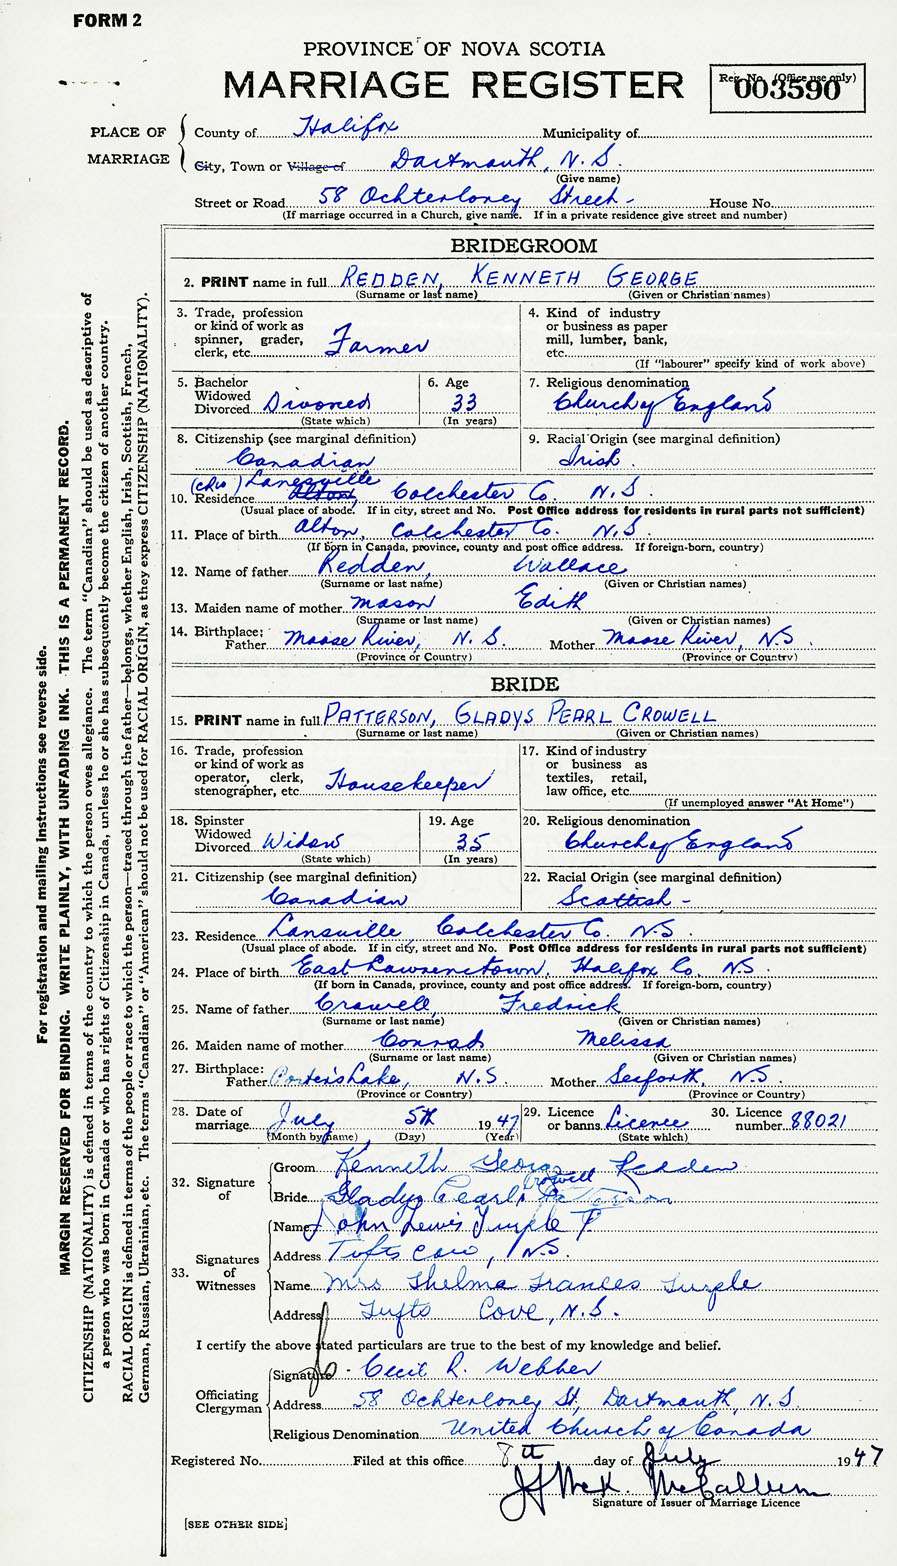 FORM 2
PROVINCE OF NOVA SCOTIA
MARRIAGE REGISTER
Reg. No. (Office use only)
003590
PLACE OF MARRIAGE
County of Halifax Municipality of
City, Town or Village of Dartmouth, N.S.
(Give name)
Street or Road 58 Ochterloney Street - House No.
(If marriage occurred in a Church, give name. If in a private residence give street and number)
BRIDEGROOM
2. PRINT name in full REDDEN, KENNETH GEORGE
(Surname or last name) (Given or Christian names)
3. Trade, profession or kind of work as spinner, grader, clerk, etc. Farmer
4. Kind of industry or business as paper mill, lumber, bank, etc.
(If "labourer" specify kind of work above)
5. Bachelor Widowed Divorced Divorced
(State which)
6. Age 33
(In years)
7. Religious denomination
Church of England
8. Citizenship (see marginal definition)
Canadian
9. Racial Origin (see marginal definition)
Irish.
Lanesville
10. Residence Alton, Colchester Co. N.S.
(Usual place of abode. If in city, street and No. Post Office address for residents in rural parts not sufficient)
11. Place of birth Alton, Colchester Co. N.S.
(If born in Canada, province, county and post office address. If foreign-born, country)
12. Name of father Redden, Wallace
(Surname or last name) (Given or Christian names)
13. Maiden name of mother Mason Edith
(Surname or last name) (Given or Christian names)
14. Birthplace: Father Moose River, N.S. Mother Moose River, N.S.
(Province or Country) (Province or Country)
BRIDE
15. PRINT name in full PATTERSON, GLADYS PEARL CROWELL
(Surname or last name) (Given or Christian names)
16. Trade, profession or kind of work as operator, clerk, stenographer, etc. Housekeeper
17. Kind of industry or business as textiles, retail, law office, etc.
(If unemployed answer "At Home")
18. Spinster Widowed Divorced Widow
(State which)
19. Age 35
(In years)
20. Religious denomination
Church of England
21. Citizenship (see marginal definition)
Canadian
22. Racial Origin (see marginal definition)
Scottish -
23. Residence Lansville, Colchester Co. N.S.
(Usual place of abode. If in city, street and No. Post Office address for residents in rural parts not sufficient)
24. Place of birth East Lawrencetown, Halifax Co. N.S.
(If born in Canada, province, county and post office address. If foreign-born, country)
25. Name of father Crowell, Fredrick
(Surname or last name) (Given or Christian names)
26. Maiden name of mother Conrad Melissa
(Surname or last name) (Given or Christian names)
27. Birthplace: Father Porter's Lake, N.S. Mother Seaforth, N.S.
(Province or Country) (Province or Country)
28. Date of marriage July 5th 1947
(Month by name) (Day) (Year)
29. Licence or banns Licence
(State which)
30. Licence number 88021
32. Signature of
Groom Kenneth George Redden
Crowell
Bride Gladys Pearl Patterson
33. Signatures of Witnesses
Name John Lewis Turple
Address Tufts Cove, N.S.
Name Mrs Thelma Frances Turple
Address Tufts Cove, N.S.
I certify the above stated particulars are true to the best of my knowledge and belief.
Officiating Clergyman
Signature Cecil R. Webber
Address 58 Ochterloney St, Dartmouth, N.S.
Religious Denomination United Church of Canada
Registered No. Filed at this office 8th day of July 1947
McCallum
Signature of Issuer of Marriage Licence
[SEE OTHER SIDE]
For registration and mailing instructions see reverse side.
MARGIN RESERVED FOR BINDING. WRITE PLAINLY, WITH UNFADING INK. THIS IS A PERMANENT RECORD.
CITIZENSHIP (NATIONALITY) is defined in terms of the country to which the person owes allegiance. The term "Canadian" should be used as descriptive of
a person who was born in Canada or who has rights of Citizenship in Canada, unless he or she has subsequently become the citizen of another country.
RACIAL ORIGIN is defined in terms of the people or race to which the person—traced through the father—belongs, whether English, Irish, Scottish, French,
German, Russian, Ukrainian, etc. The terms "Canadian" or "American" should not be used for RACIAL ORIGIN, as they express CITIZENSHIP (NATIONALITY).